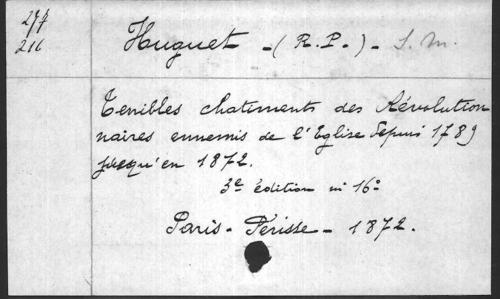 274
216
Huguet - (R.P.) - S.m.
Terribles chatiments des Révolution
naires ennemis de l'Eglise depuis 1789
jusqu'en 1872.
3e édition in 16°
Paris - Périsse - 1872.